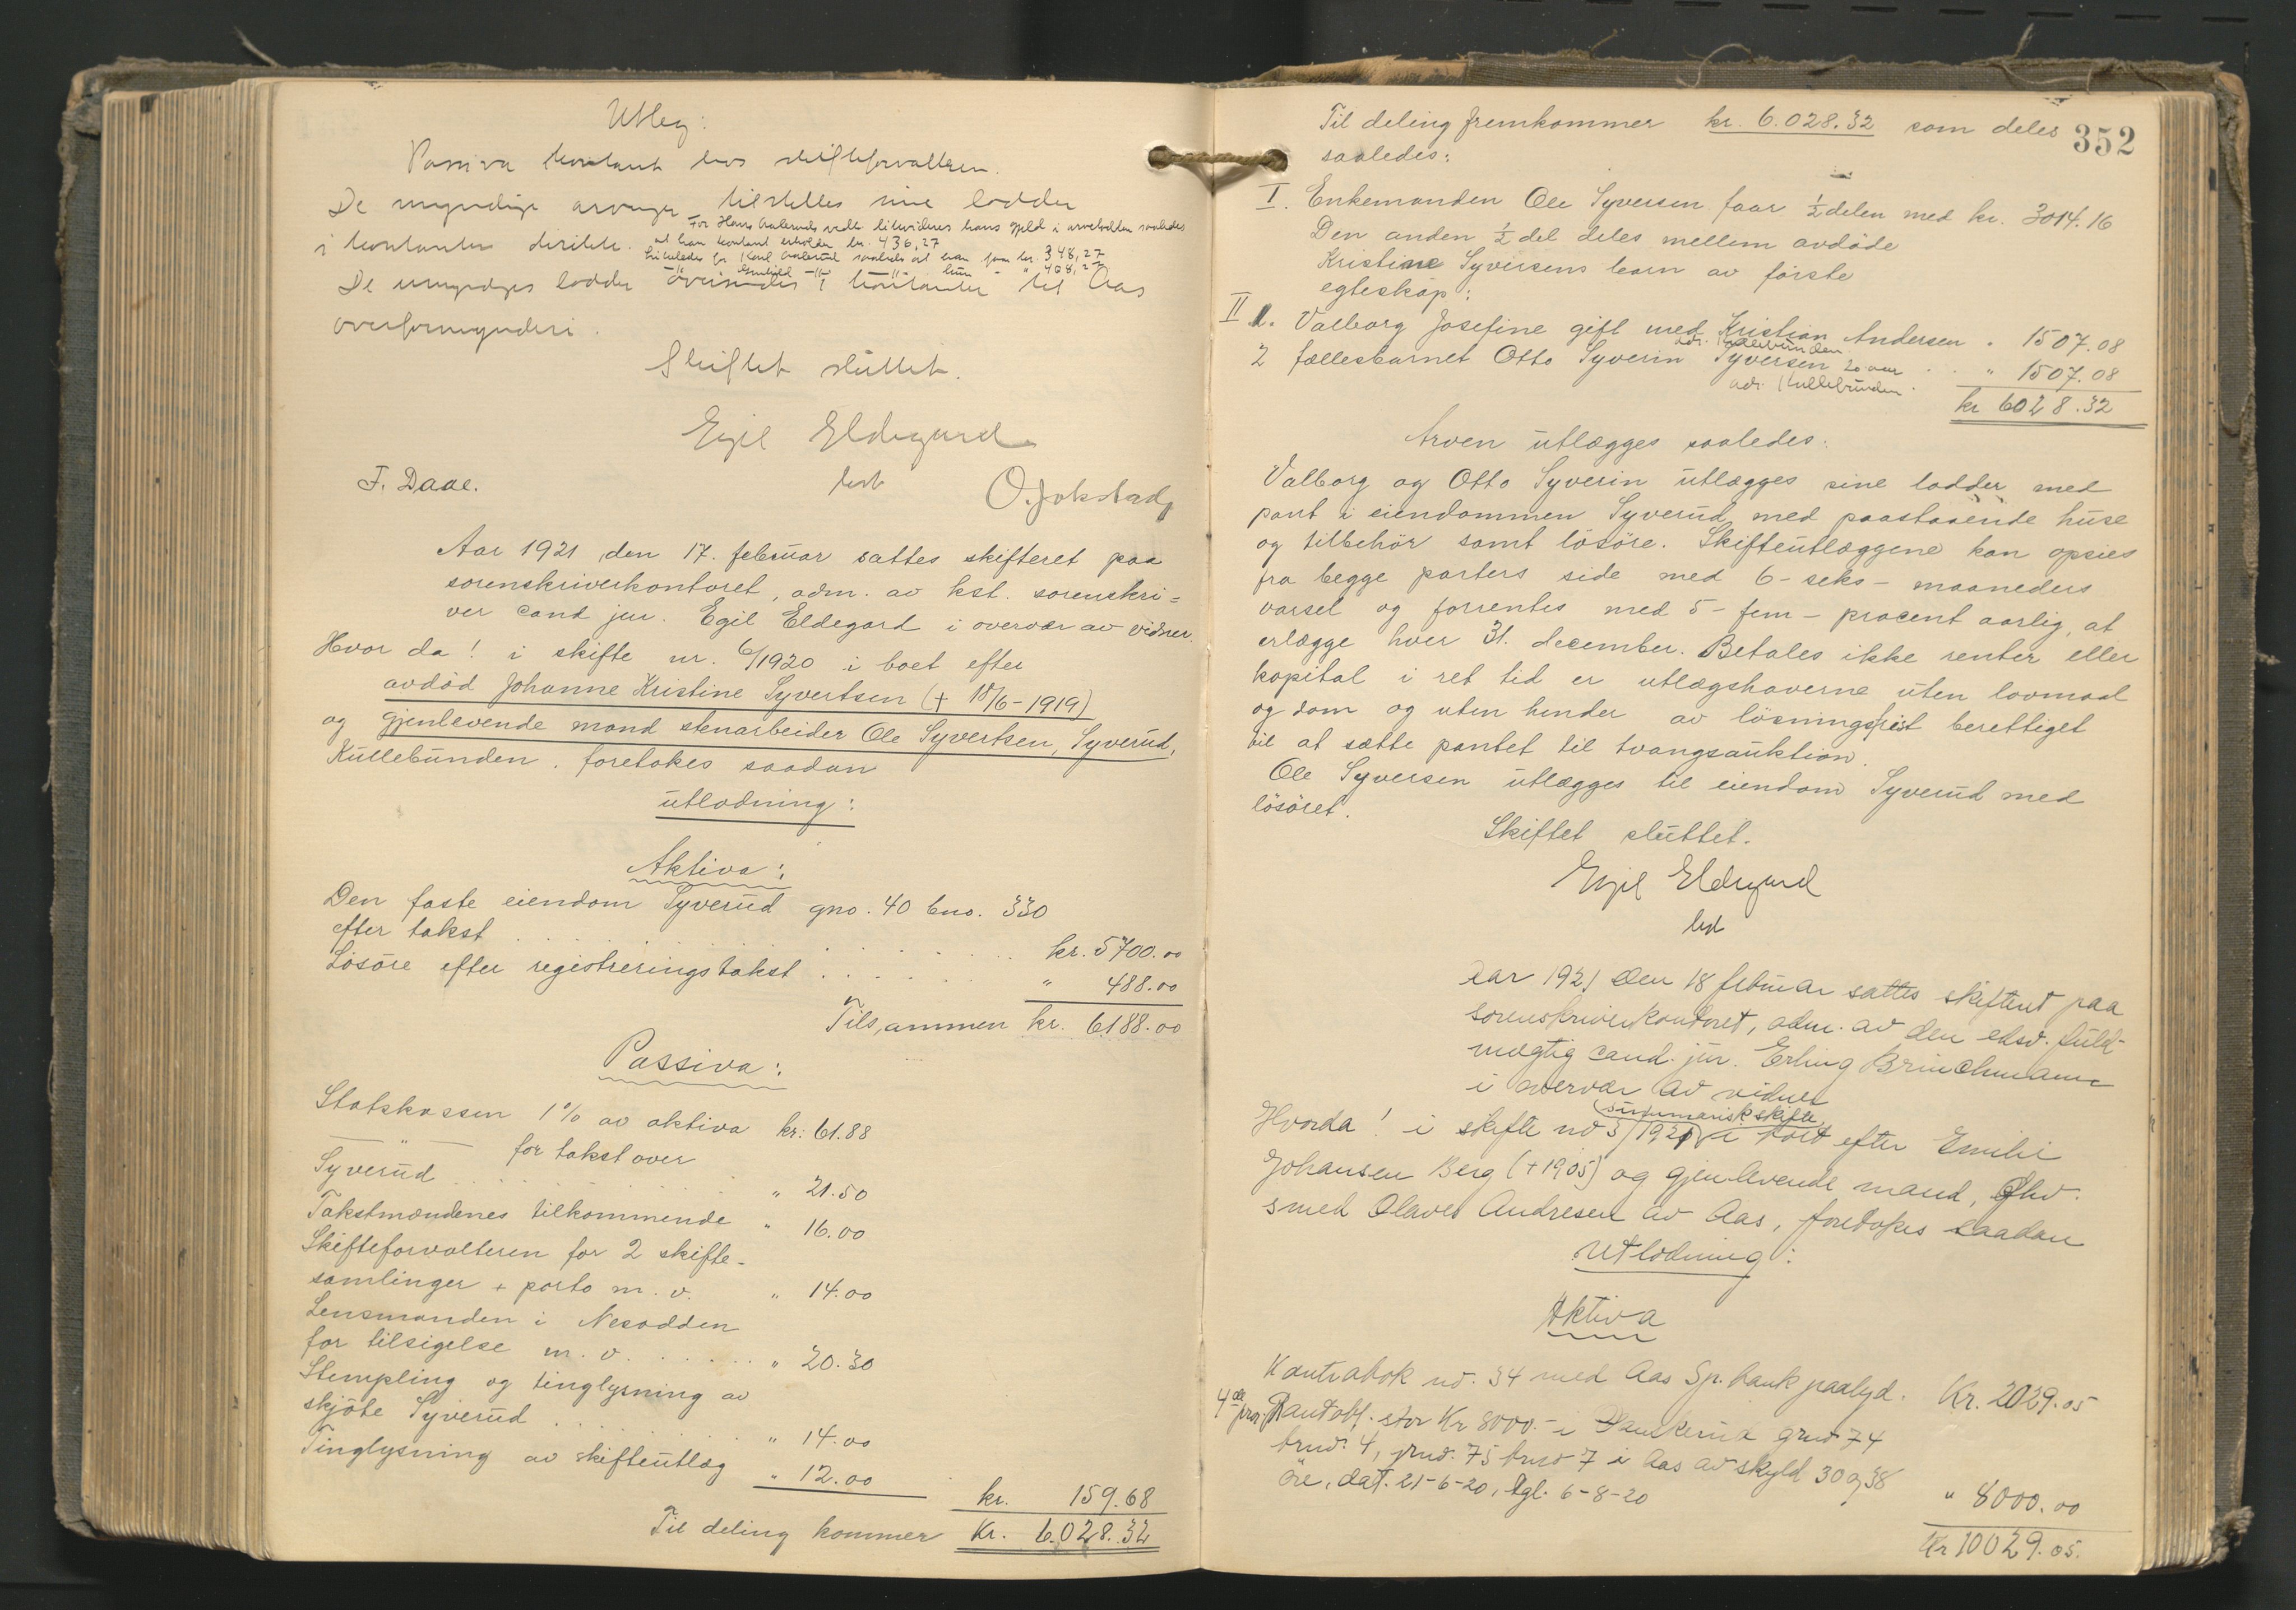 Utleg:
Passiva kontant hos skifteforvalteren.
De myndige arvinger tilstilles sine lodder
i kontanter direkte. For Hans vedk. likvideres hans gjeld i arvelodden saaledes
at han kontant erholder kr. 436,27
Likeledes for Karl saaledes at han faar kr. 348,27
—"— —"— —"— hun - " 408,27
De umyndiges lodder oversendes i kontanter til Aas
overformynderi.
Skiftet sluttet.
Egil Eldegard
kst
F. Daae.
O. Jokstad
Aar 1921 den 17. februar sattes skifteret paa
sorenskriverkontoret, adm. av kst. sorenskri=
ver cand jur. Egil Eldegard i overvær av vidner.
Hvor da! i skifte nr. 6/1920 i boet efter
avdød Johanne Kristine Syvertsen († 18/6-1919)
og gjenlevende mand stenarbeider Ole Syvertsen, Syverud,
Kullebunden. foretokes saadan
utlodning:
Aktiva:
Den faste eiendom Syverud gno. 40 bno. 330
efter takst . . . . . . . . kr. 5700.00
Løsøre efter registreringstakst . . . . . . " 488.00
Tilsammen kr. 6188.00
Passiva:
Statskassen 1% av aktiva kr: 61.88
—"— for takst over
Syverud . . . . . . " 21.50
Takstmændenes tilkommende " 16.00
Skifteforvalteren for 2 skifte-
samlinger + porto m. v. " 14.00
Lensmanden i Nesodden
for tilsigelse m. v. . . . . . " 20.30
Stempling og tinglysning av
skjøte Syverud . . . . . " 14.00
Tinglysning av skifteutlæg " 12.00
kr. 159.68
Til deling kommer Kr. 6.028.32
352
Til deling fremkommer kr. 6.028.32 som deles
saaledes:
I. Enkemanden Ole Syversen faar ½ delen med kr. 3014.16
Den anden ½ del deles mellem avdøde
Kristine Syversens barn av første
egteskap:
II 1. Valborg Josefine gift med Kristian Andersen " 1507.08
adr. Kullebunden
2 fællesbarnet Otto Syverin Syversen 20 aar . . " 1507.08
adr. Kullebunden.
kr 6028.32
Arven utlægges saaledes:
Valborg og Otto Syverin utlægges sine lodder med
pant i eiendommen Syverud med paastaaende huse
og tilbehør samt løsøre. Skifteutlæggene kan opsies
fra begge parters side med 6-seks- maaneders
varsel og forrentes med 5-fem- procent aarlig, at
erlægge hver 31. december. Betales ikke renter eller
kapital i ret tid er utlægshaverne uten lovmaal
og dom og uten hinder av løsningsfrist berettiget
til at sætte pantet til tvangsauktion.
Ole Syversen utlægges til eiendom Syverud med
løsøret.
Skiftet sluttet.
Egil Eldegard
kst
Aar 1921 den 18 februar sattes skifteret paa
sorenskriverkontoret, adm. av den edsv. fuld-
mægtig cand. jur. Erling Brinchmann
i overvær av vidner
Hvorda! i skifte no 3/1921 (summarisk skifte) i boet efter Emilie
Johansen Berg (+1905) og gjenlevende mand, Ghv.
smed Olaves Andresen av Aas, foretokes saadan
Utlodning:
Aktiva
Kontrabok no. 34 med Aas Sp. bank paalyd. Kr. 2029.05
4de pror. Pantobl. stor Kr 8000.- i gno 74
bno. 4, gno. 75 bno 7 i Aas av skyld 30 og 38
øre, dat. 21-6-20, tgl. 6-8-20 " 8000.00
Kr 10029.05.